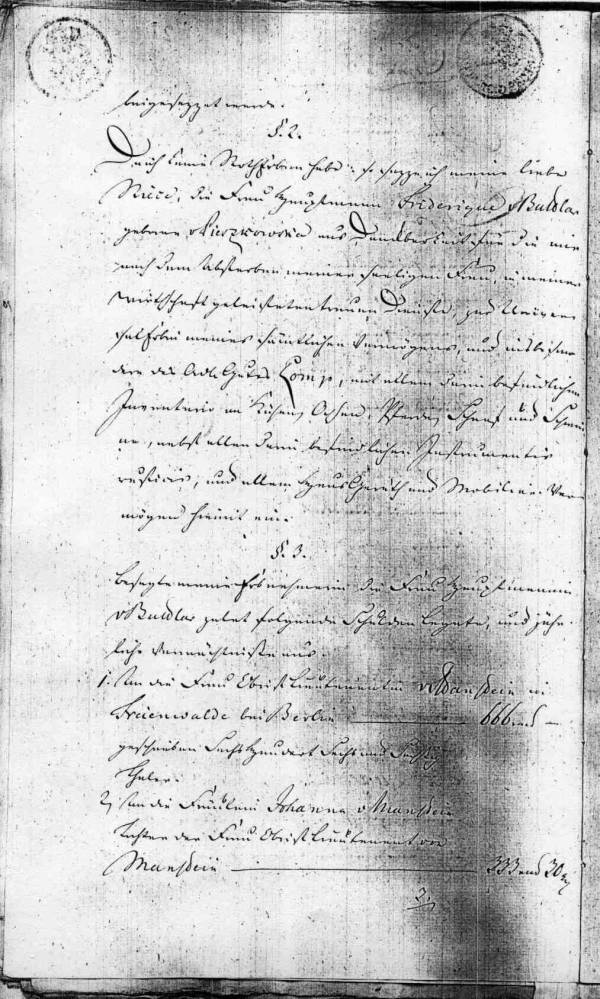 beigesetzet werde.
§. 2.
Da ich keine Notherben habe, so setze ich meine liebe
Niece, die Frau Hauptmann Friderique v Buddlar
geborne aus Dankbarkeit für die mir
nach dem Absterben meiner seeligen Frau, in meiner
Wirthschaft geleisteten treuen Dienste, zur Univer
salerbin meines sämtlichen Vermögens, und insbeson
dere des Adl. Gutes Komp, mit allem darin befindlichen
Inventario an Kühen, Ochsen, Pferden, Schaaf und Schwei
ne, nebst allen darin befindlichen Instrumentis
rusticis, und allem Haus Geräth und Mobiliar Ver
mögen hiemit ein.
§. 3.
Besagte meine Erbnehmerin die Frau Hauptmannin
v Buddlar zalet folgende Schulden Legate, und jähr
liche Vermächtnisse aus.
1. An die Frau Obrist Lieutenantin v Manstein in
Freienwalde bei Berlin — 666
geschrieben Sechs Hundert Sechs und Sechzig
Thaler.
2, An die Fräulein Johanna v Manstein
Tochter der Frau Obrist Lieutenant von
Manstein — 333 30
3,